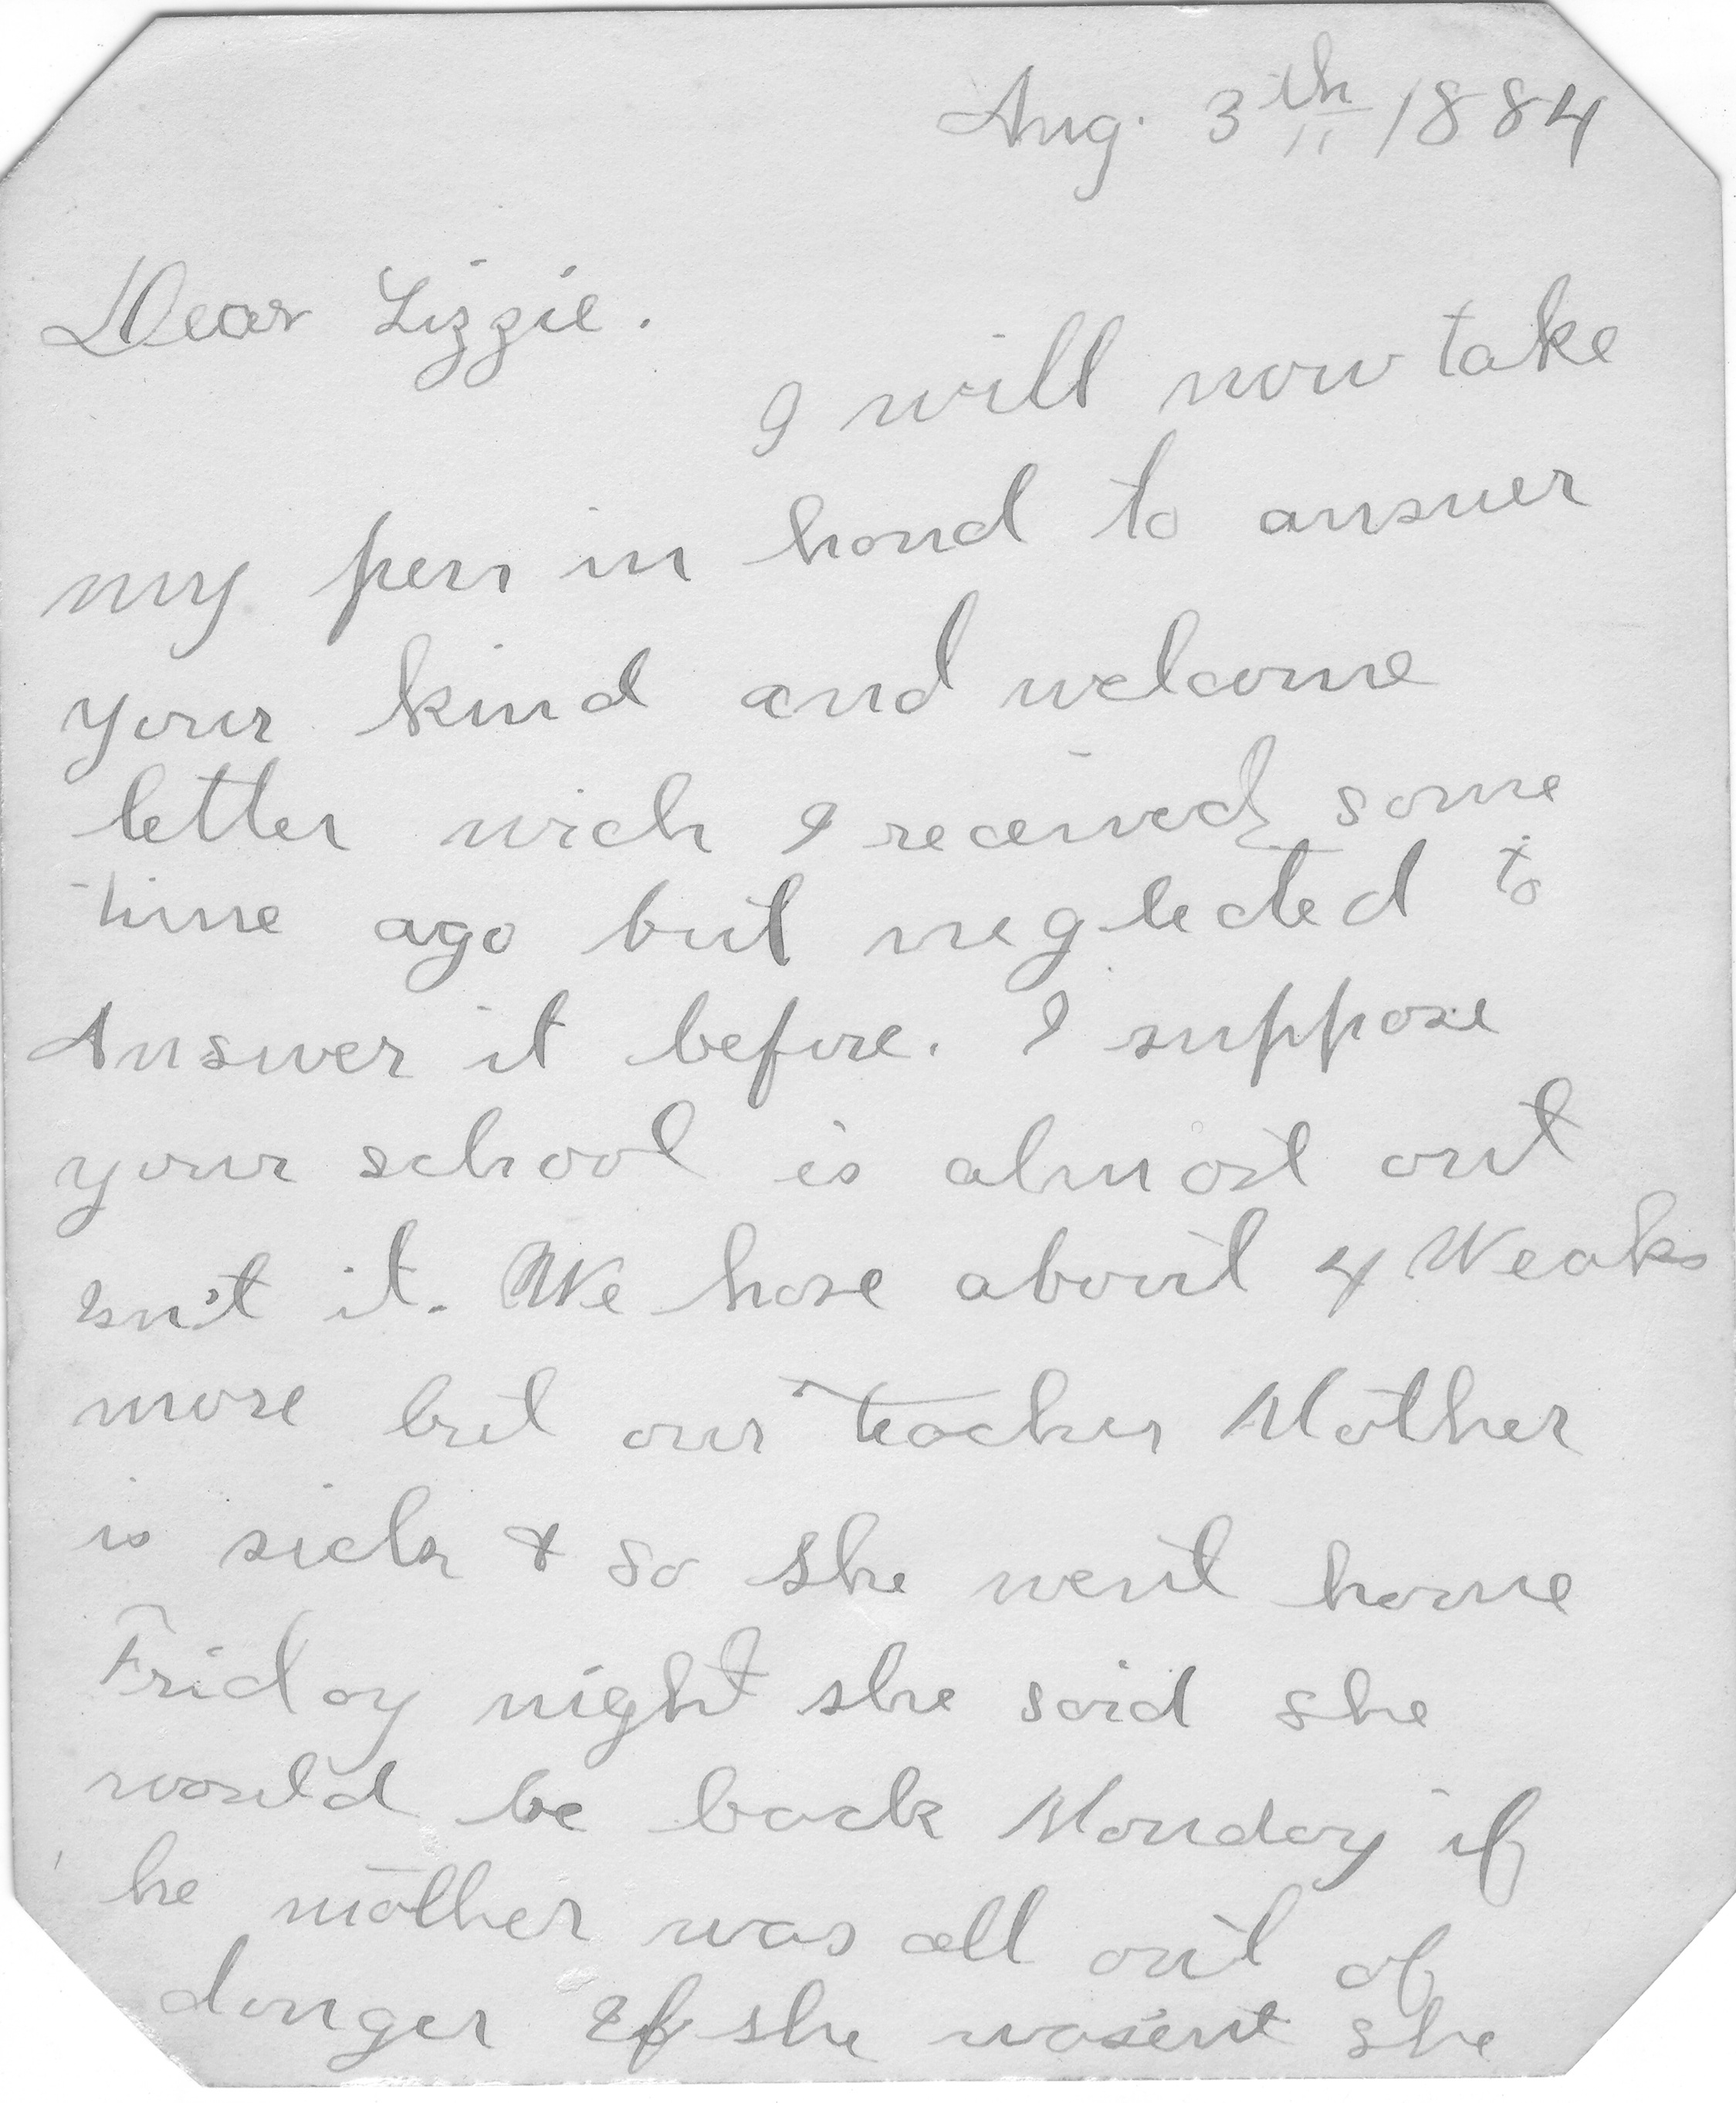 Aug. 3th 1884
Dear Lizzie.
I will now take
my pen in hand to answer
your kind and welcome
letter wich I received some
time ago but neglected to
Answer it before. I suppose
your school is almost out
isn't it. We have about 4 Weaks
more but our teacher Mother
is sick & so she went home
Friday night she said she
would be back Monday if
he mother was all out of
danger If she wasent she